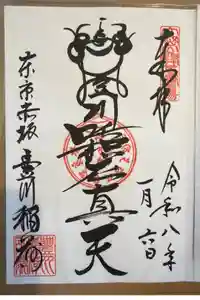 奉拝
令和八年
一月六日
吒枳真天
東京赤坂
豊川稲荷